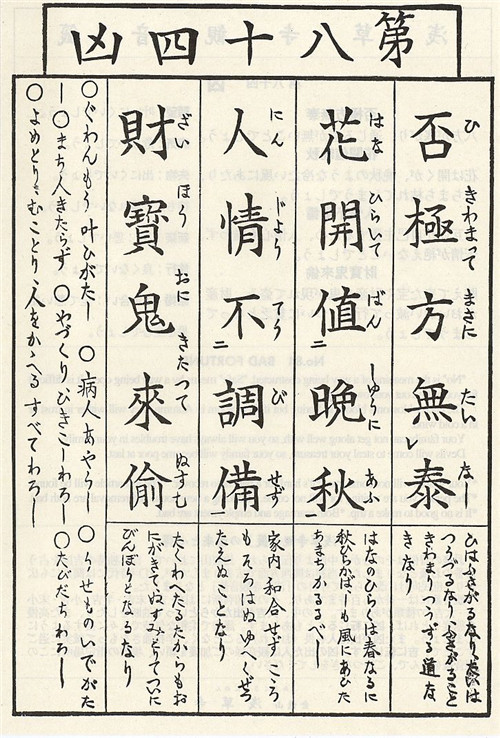 第八十四凶
否極方無泰
ひ きわまって まさに たい なし
ひはふさがるなりたいは
つうづるなりふさがること
きわまりつうずる道な
きなり
花開値晩秋
はな ひらいて ばん しゅうに あふ
はなのひらくは春なるに
秋ひらかば しも風にあひた
ちまちかるるべし
人情不調備
にん じよう び せず
家内和合せずこころ
もそろはぬゆへくぜつ
たえぬとなり
財寶鬼來偷
ざい ほう おに きたって ぬすむ
たくわへたるたからもお
にがきてぬすみすてついに
びんぼうになるなり
〇ぐわんもう叶ひがたし 〇病人あやうし 〇うせものいでがたし
〇まち人きたらず 〇やづくりひきこしわろし 〇たびだちわろし
〇よめとりむことり人をかゝへるすべてわろし